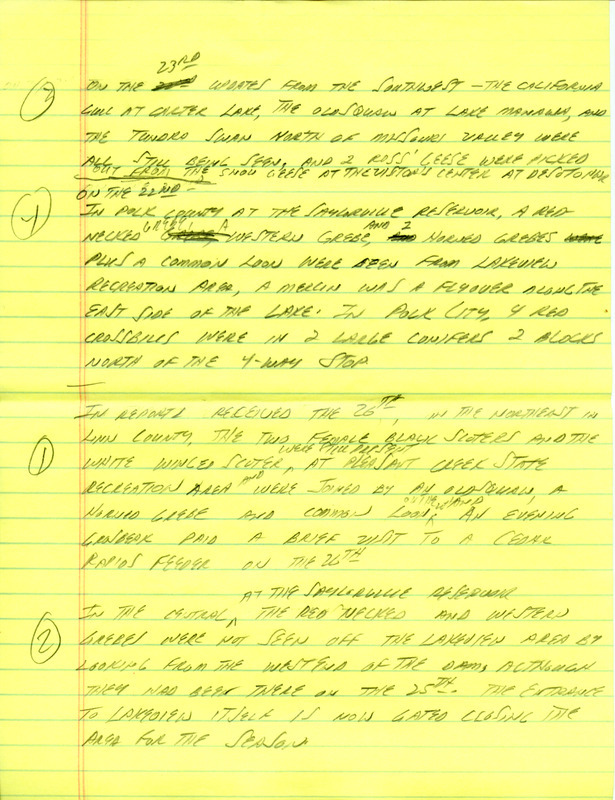 23RD
③ ON THE UPDATES FROM THE SOUTHWEST – THE CALIFORNIA
GULL AT CARTER LAKE, THE OLDSQUAW AT LAKE MANAWA, AND
THE TUNDRA SWAN NORTH OF MISSOURI VALLEY WERE
ALL STILL BEING SEEN, AND 2 ROSS' GEESE WERE PICKED
OUT FROM THE SNOW GEESE AT THE VISITOR'S CENTER AT DESOTO NWR
ON THE 22ND
④ IN POLK COUNTY AT THE SAYLORVILLE RESERVOIR, A RED
NECKED GREBE, A WESTERN GREBE, AND 2 HORNED GREBES
PLUS A COMMON LOON WERE SEEN FROM LAKEVIEW
RECREATION AREA, A MERLIN WAS A FLYOVER ALONG THE
EAST SIDE OF THE LAKE. IN POLK CITY, 4 RED
CROSSBILLS WERE IN 2 LARGE CONIFERS 2 BLOCKS
NORTH OF THE 4-WAY STOP
—
IN REPORTS RECEIVED THE 26TH, IN THE NORTHEAST IN
① LINN COUNTY, THE TWO FEMALE BLACK SCOTERS AND THE
WERE STILL PRESENT
WHITE WINGED SCOTER, AT PLEASANT CREEK STATE
RECREATION AREA AND WERE JOINED BY AN OLDSQUAW, A
HORNED GREBE AND COMMON LOON ON THE AND AN EVENING
GROSBEAK PAID A BRIEF VISIT TO A CEDAR
RAPIDS FEEDER ON THE 26TH
AT THE SAYLORVILLE RESERVOIR
② IN THE CENTRAL, THE RED NECKED AND WESTERN
GREBES WERE NOT SEEN OFF THE LAKEVIEW AREA BY
LOOKING FROM THE WEST END OF THE DAM, ALTHOUGH
THEY HAD BEEN THERE ON THE 25TH. THE ENTRANCE
TO LAKEVIEW ITSELF IS NOW GATED CLOSING THE
AREA FOR THE SEASON.